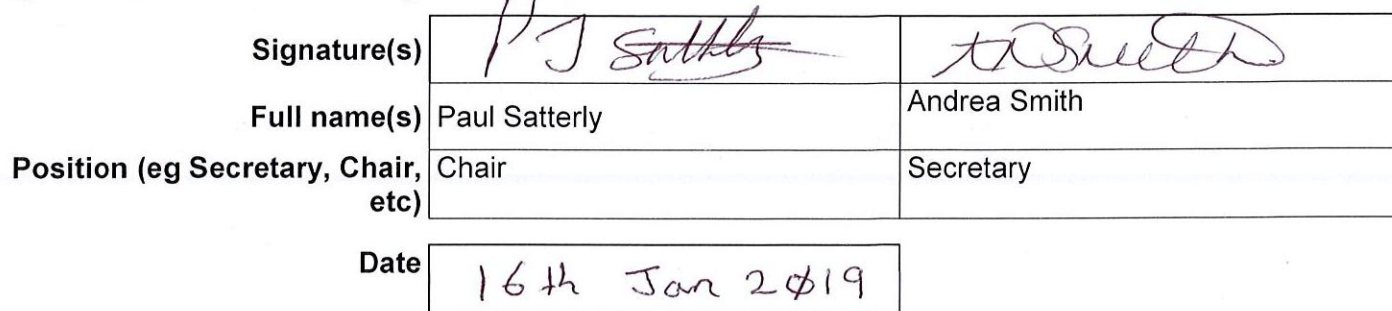 Signature(s) P J Satterly A Smith
Full name(s) Paul Satterly Andrea Smith
Position (eg Secretary, Chair, etc) Chair Secretary
Date 16th Jan 2019